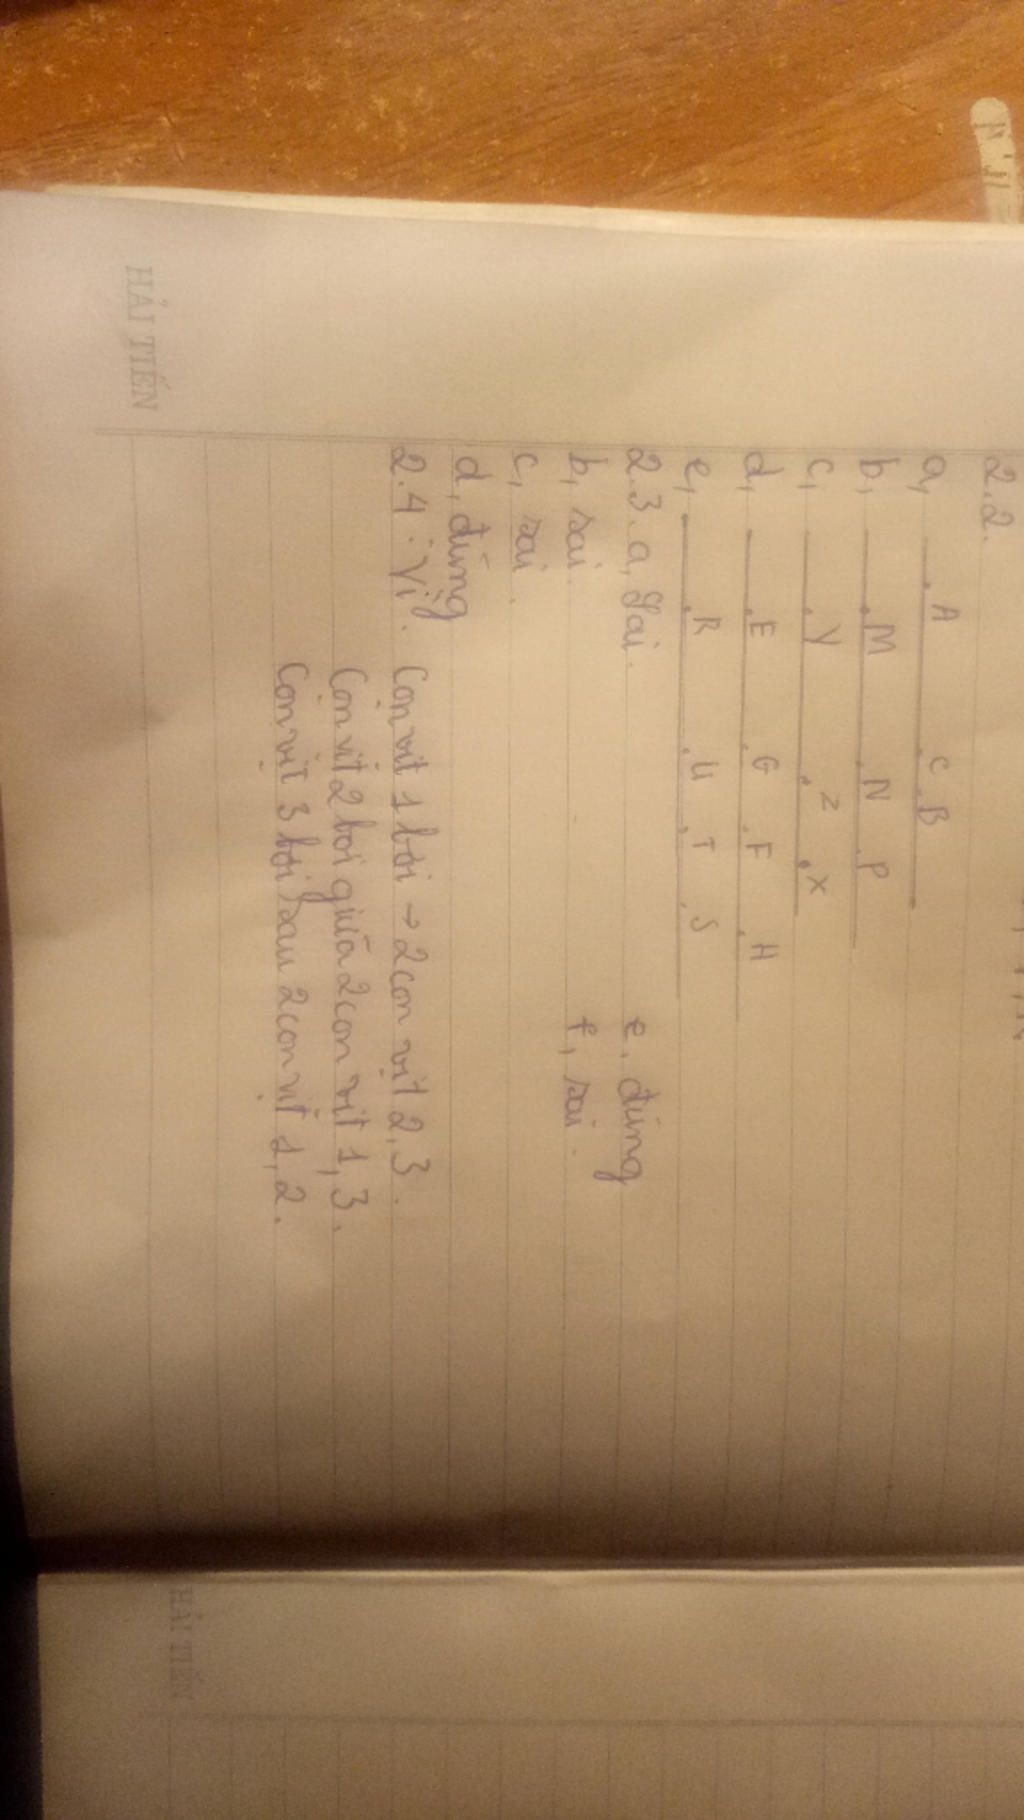 2.2.
a, A C B
b, M N P
c, Y Z X
d, E G F H
e, R U T S
2.3. a, Sai. e, đúng
b, sai. f, sai.
c, sai.
d, đúng
2.4: Vì: Con vịt 1 bơi → 2 con vịt 2,3.
Con vịt 2 bơi giữa 2 con vịt 1,3.
Con vịt 3 bơi sau 2 con vịt 1,2.
HẢI TIẾN
HẢI TIẾN